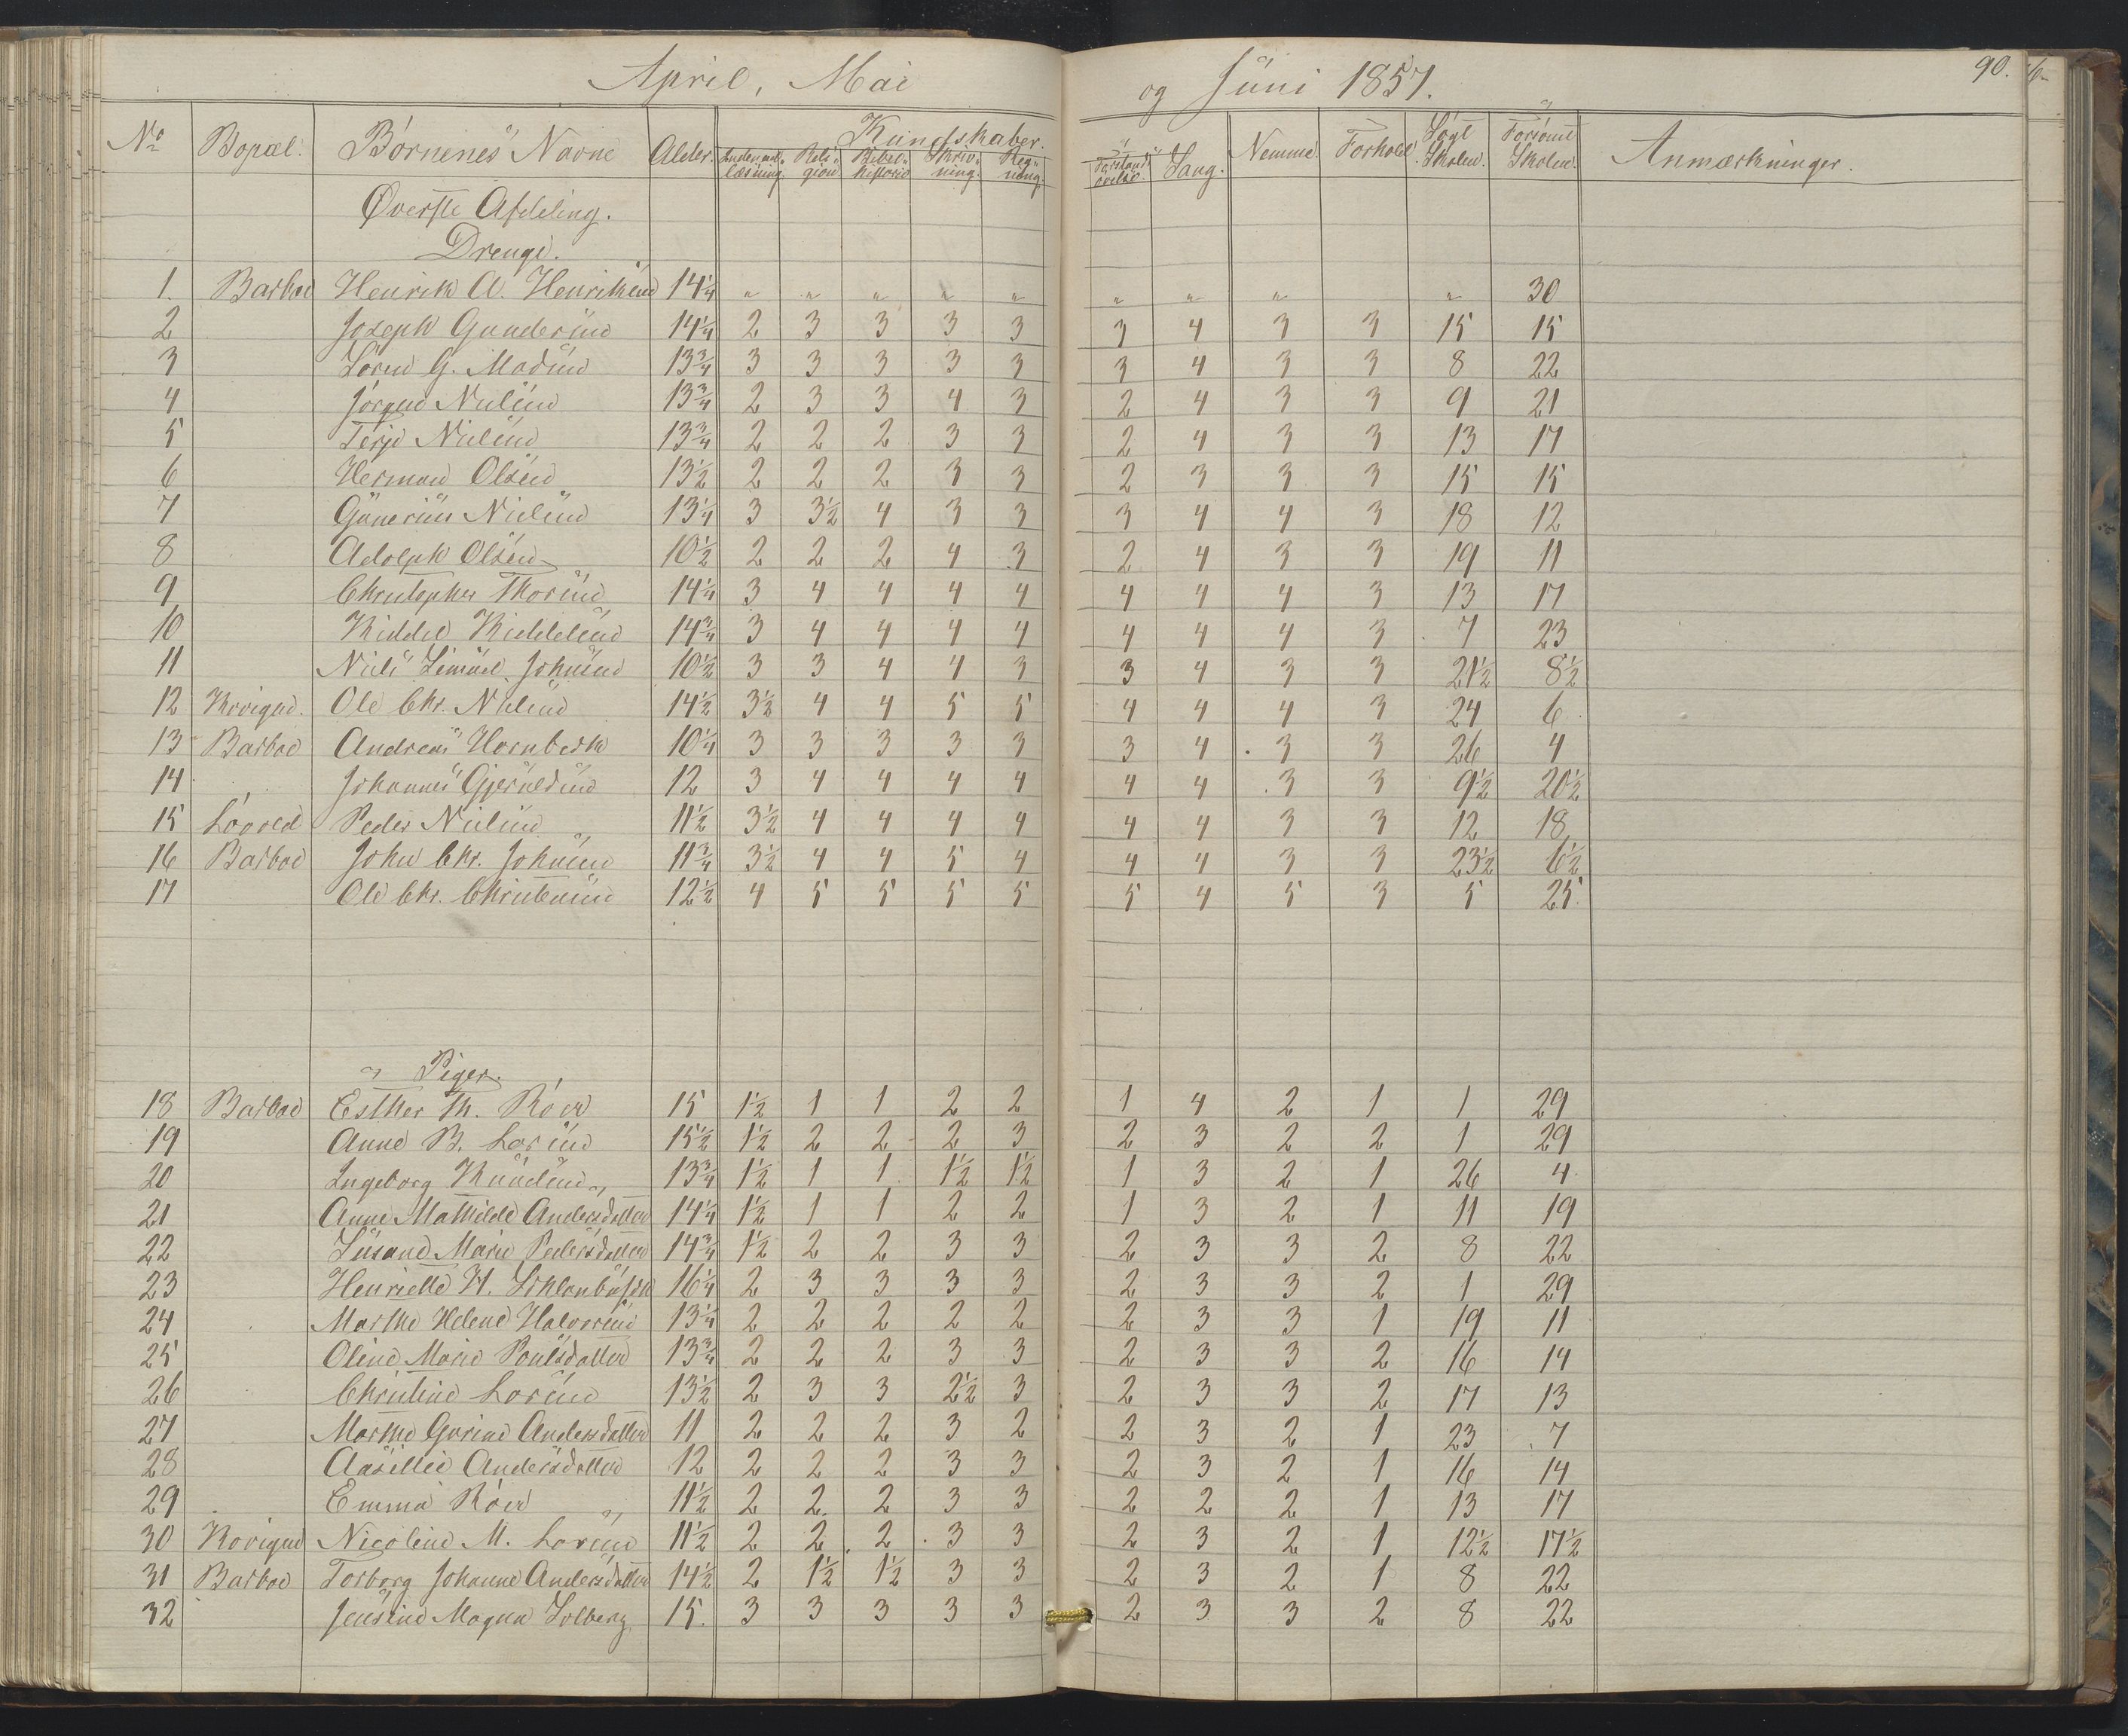 April, Mai og Juni 1857. 90.
No Bopæl. Børnenes Navne Alder. Kundskaber. Nemme. Forhold. Søgt Skolen. Forsømt Skolen. Anmærkninger.
Indenad-læsning. Reli-gion. Bibel-historie Skriv-ning. Reg-ning. Forstands-øvelse. Sang.
Øverste Afdeling.
Drenge.
1. Barboe Henrik A. Henriksen 14 1/4 " " " " " " " " " 30
2 Joseph Gundersen 14 1/4 2 3 3 3 3 3 4 3 3 15 15
3 Søren G. Madsen 13 3/4 3 3 3 3 3 3 4 3 3 8 22
4 Jørgen Nielsen 13 3/4 2 3 3 4 3 2 4 3 3 9 21
5 Terje Nielsen 13 3/4 2 2 2 3 3 2 4 3 3 13 17
6 Herman Olsen 13 1/2 2 2 2 3 3 2 3 3 3 15 15
7 Gunerius Nielsen 13 1/4 3 3 1/2 4 3 3 3 4 4 3 18 12
8 Adolph Olsen 10 1/2 2 2 2 4 3 2 4 3 3 19 11
9 Christopher Thorsen 14 1/4 3 4 4 4 4 4 4 4 3 13 17
10 Kiddel Kiddelsen 14 3/4 3 4 4 4 4 4 4 4 3 7 23
11 Niels Simael Johnsen 10 1/2 3 3 4 4 3 3 4 3 3 21 1/2 8 1/2
12 Krøigen. Ole Chr. Nielsen 14 1/2 3 1/2 4 4 5 5 4 4 4 3 24 6
13 Barboe Andreas Hornbeck 10 1/4 3 3 3 3 3 3 4 3 3 26 4
14 Johannes Gjeruldsen 12 3 4 4 4 4 4 4 3 3 9 1/2 20 1/2
15 Løvold Peder Nielsen 11 1/2 3 1/2 4 4 4 4 4 4 3 3 12 18
16 Barboe John Chr. Johnsen 11 3/4 3 1/2 4 4 5 4 4 4 3 3 23 1/2 6 1/2
17 Ole Chr. Christensen 12 1/2 4 5 5 5 5 5 4 5 3 5 25
Piger.
18 Barboe Esther Th. Röer 15 1 1/2 1 1 2 2 1 4 2 1 1 29
19 Anne B. Larsen 15 1/2 1 1/2 2 2 2 3 2 3 2 2 1 29
20 Ingeborg Knudsen 13 3/4 1 1/2 1 1 1 1/2 1 1/2 1 3 2 1 26 4
21 Anne Mathilde Andersdatter 14 1/4 1 1/2 1 1 2 2 1 3 2 1 11 19
22 Susanne Marie Pedersdatter 14 3/4 1 1/2 2 2 3 3 2 3 3 2 8 22
23 Henriette H. Schlanbusch 16 1/4 2 3 3 3 3 2 3 3 2 1 29
24 Marthe Helene Halvorsen 13 1/4 2 2 2 2 2 2 3 3 1 19 11
25 Oline Marie Poulsdatter 13 3/4 2 2 2 3 3 2 3 3 2 16 14
26 Christine Larsen 13 1/2 2 3 3 2 1/2 3 2 3 3 2 17 13
27 Marthe Gurine Andersdatter 11 2 2 2 3 2 2 3 2 1 23 7
28 Aasillie Andersdatter 12 2 2 2 3 3 2 3 2 1 16 14
29 Emma Röer 11 1/2 2 2 2 3 3 2 2 2 1 13 17
30 Krøigen Nicoline M. Larsen 11 1/2 2 2 2 3 3 2 3 2 1 12 1/2 17 1/2
31 Barboe Torborg Johanne Andersdatter 14 1/2 2 1 1/2 1 1/2 3 3 2 3 2 1 8 22
32 Jensine Magna Solberg 15. 3 3 3 3 3 2 3 3 2 8 22